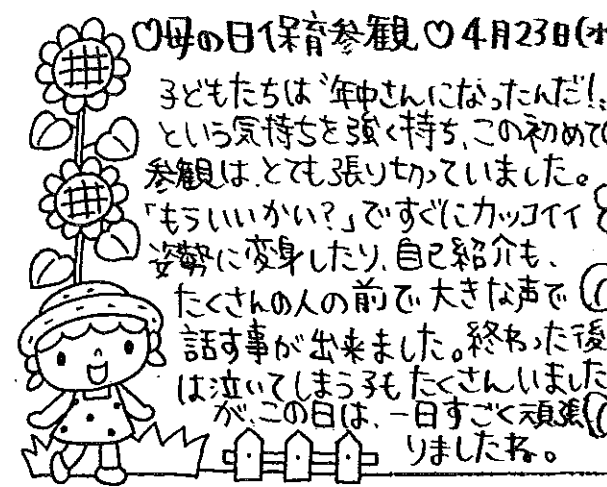 ♡母の日保育参観♡4月23日(水
子どもたちは〝年中さんになったんだ!〟
という気持ちを強く持ち、この初めての
参観は、とても張り切っていました。
「もういいかい?」ですぐにカッコイイ
姿勢に変身したり、自己紹介も、
たくさんの人の前で大きな声で
話す事が出来ました。終わった後
は泣いてしまう子もたくさんいました
が、この日は、一日すごく頑張
りましたね。